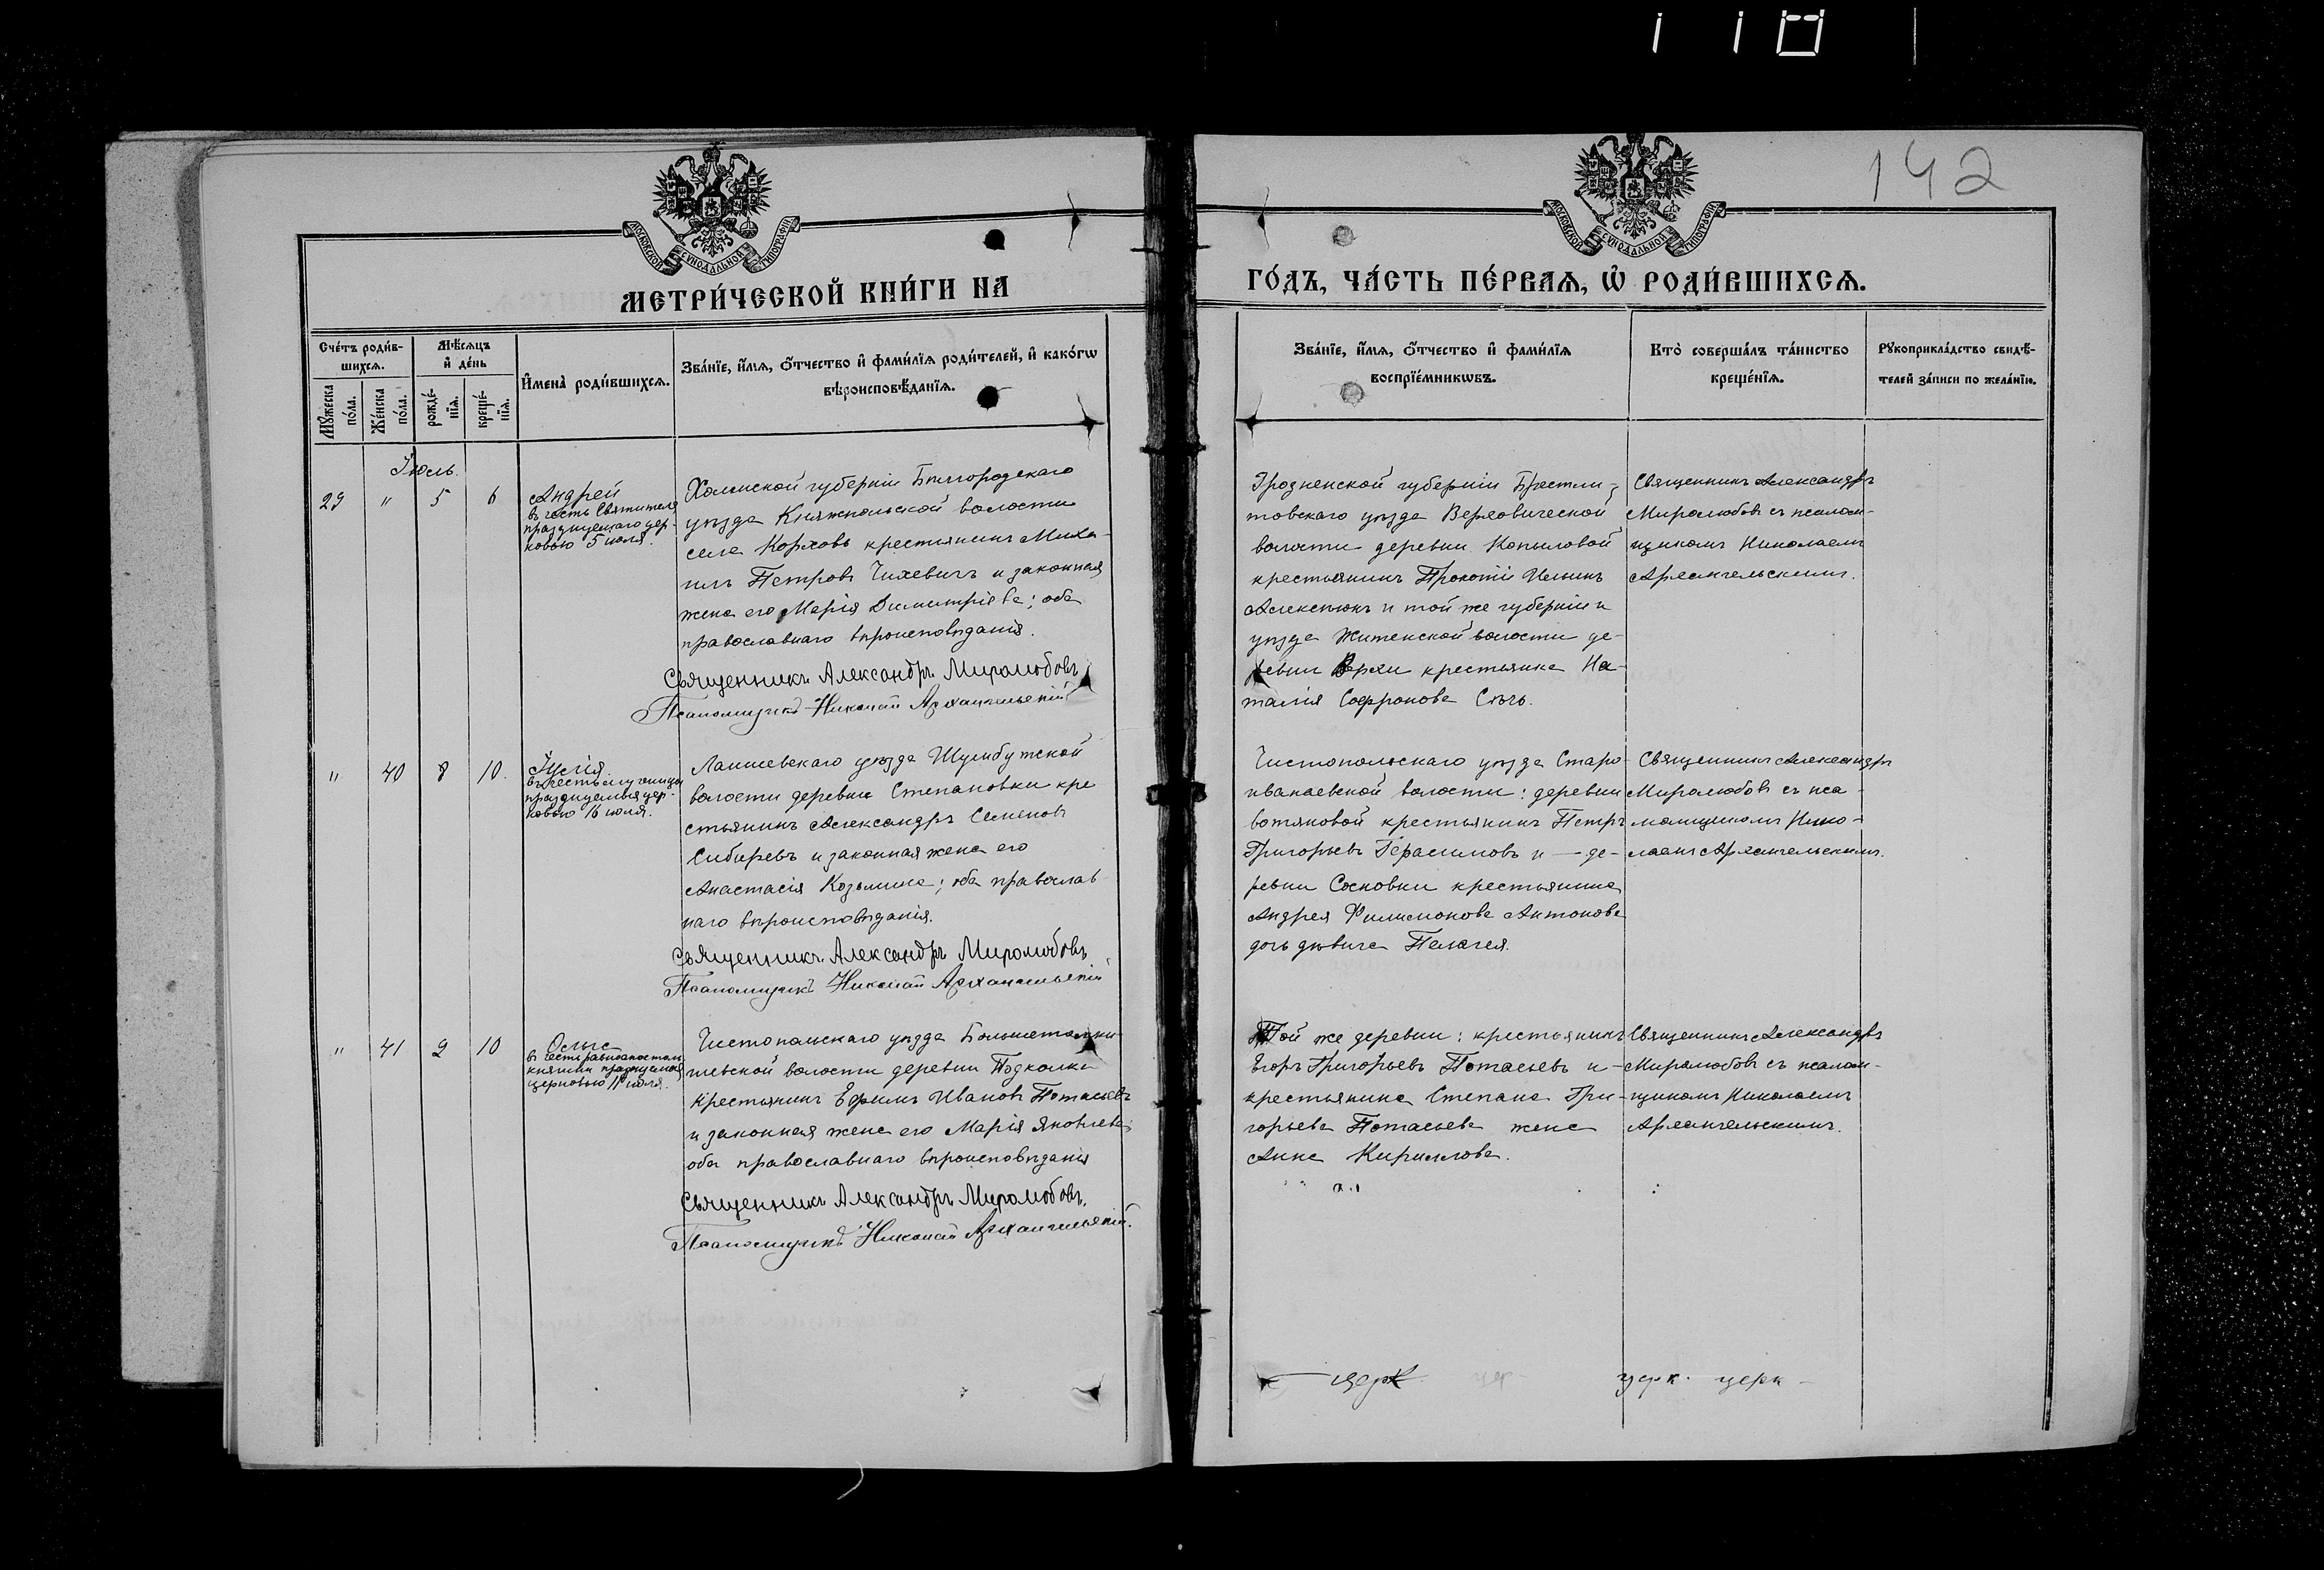 142
МОСКОВСКОЙ СѴНОДАЛЬНОЙ ТИПОГРАФІИ
МОСКОВСКОЙ СѴНОДАЛЬНОЙ ТИПОГРАФІИ
МЕТРИ́ЧЕСКОЙ КНИ́ГИ НА
ГО́ДЪ, ЧА́СТЬ ПЕ́РВАѦ, Ѡ҆ РОДИ́ВШИХСѦ.
Сче́тъ роди́в-
шихсѧ.
Мꙋ́жеска
по́ла.
Же́нска
по́ла.
Мѣ́сѧцъ
и҆ де́нь
рожде́-
нїѧ.
креще́-
нїѧ.
И҆мена̀ роди́вшихсѧ.
Зва́нїе, и҆́мѧ, ѻ҆́тчество и҆ фами́лїѧ роди́телей, и҆ како́гѡ
вѣроисповѣ́данїѧ.
Зва́нїе, и҆́мѧ, ѻ҆́тчество и҆ фами́лїѧ
воспрїе́мникѡвъ.
Кто̀ соверша́лъ та́инство
креще́нїѧ.
Рꙋкоприкла́дство свидѣ́-
телей за́писи по жела́нїю.
Іюль.
29 " 5 6
Андрей
въ честь Святителя
празднуемаго цер-
ковью 5 июля.
Холмской губерніи Бѣлгородскаго
уѣзда Княжпольской волости
села Корховъ крестьянинъ Миха-
илъ Петровъ Чихевичъ и законная
жена его Марія Димитріева; оба
православнаго вѣроисповѣданія.
Священникъ Александръ Миролюбовъ
Псаломщикъ Николай Архангельскій
Гродненской губерніи Брестли-
товскаго уѣзда Верховической
волости деревни Копыловой
крестьянинъ Прокопій Ильинъ
Алексѣюкъ и той же губерніи и
уѣзда Житенской волости де-
ревни Верхи крестьянка На-
талія Софронова
Священникъ Александръ
Миролюбовъ съ псалом-
щикомъ Николаемъ
Архангельскимъ.
" 40 8 10.
Іулія
въ честь мученицы
празднуемыя цер-
ковью 16 июля.
Лаишевскаго уѣзда Шумбутской
волости деревни Степановки кре
стьянинъ Александръ Семеновъ
Сибиревъ и законная жена его
Анастасія Козьмина; оба православ
наго вѣроисповѣданія.
Священникъ Александръ Миролюбовъ
Псаломщикъ Николай Архангельскій
Чистопольскаго уѣзда Старо-
иванаевской волости: деревни
вотяковой крестьянинъ Петръ
Григорьевъ Герасимовъ и — де-
ревни Сосновки крестьянина
Андрея Филимонова Антонова
дочь дѣвица Пелагея.
Священникъ Александръ
Миролюбовъ съ пса-
ломщикомъ Нико-
лаемъ Архангельскимъ.
" 41 9 10
Ольга
въ честь равноапостоль
княгини празднуемой
церковью 11 июля.
Чистопольскаго уѣзда Большетолки-
шевской волости деревни Подколка
крестьянинъ Ефимъ Ивановъ Потасьевъ
и законная жена его Марія Яковлева;
оба православнаго вѣроисповѣданія
Священникъ Александръ Миролюбовъ.
Псаломщикъ Николай Архангельскій.
Той же деревни: крестьянинъ
Егоръ Григорьевъ Потасьевъ и —
крестьянина Степана Гри-
горьева Потасьева жена
Анна Кириллова.
Священникъ Александръ
Миролюбовъ съ псалом-
щикомъ Николаемъ
Архангельскимъ.
церк. церк. церк